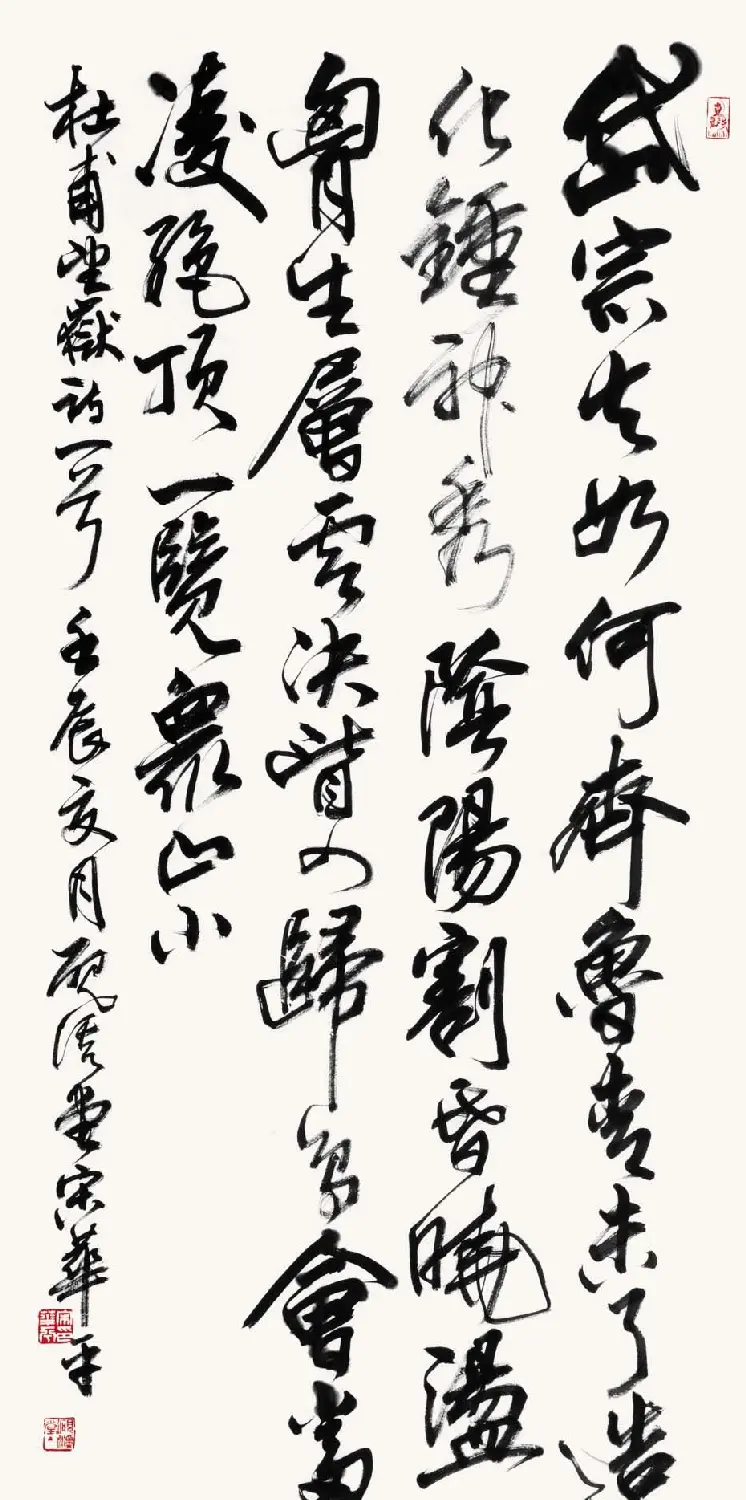 岱宗夫如何齊魯青未了造
化鍾神秀陰陽割昏曉盪
胷生層雲決眥入歸鳥會當
凌絕頂一覽眾山小
杜甫望嶽詩一首 壬辰亥月硯堂宋華平